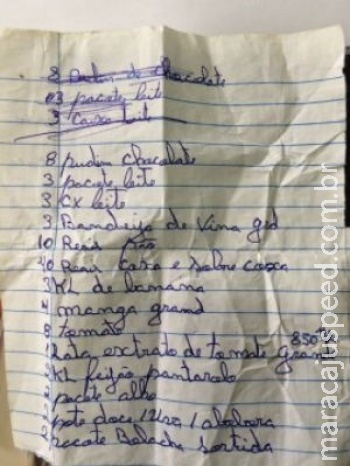 8 Pudim de chocolate
3 pacote leite
3 caixa leite
8 pudim chocolate
3 pacote leite
3 CX leite
3 Bandeija de vina gd
10 Reais pão
40 Reais Coxa e sobre coxa
3 KL de banana
4 manga grand
8 tomate
1 Lata extrato de tomate grand 850
KL feijão pantarolo
2 pacote alho
2 pote doce 1 uva 1 abobora
2 pacote Bolacha sortida
maracajuspeed.com.br